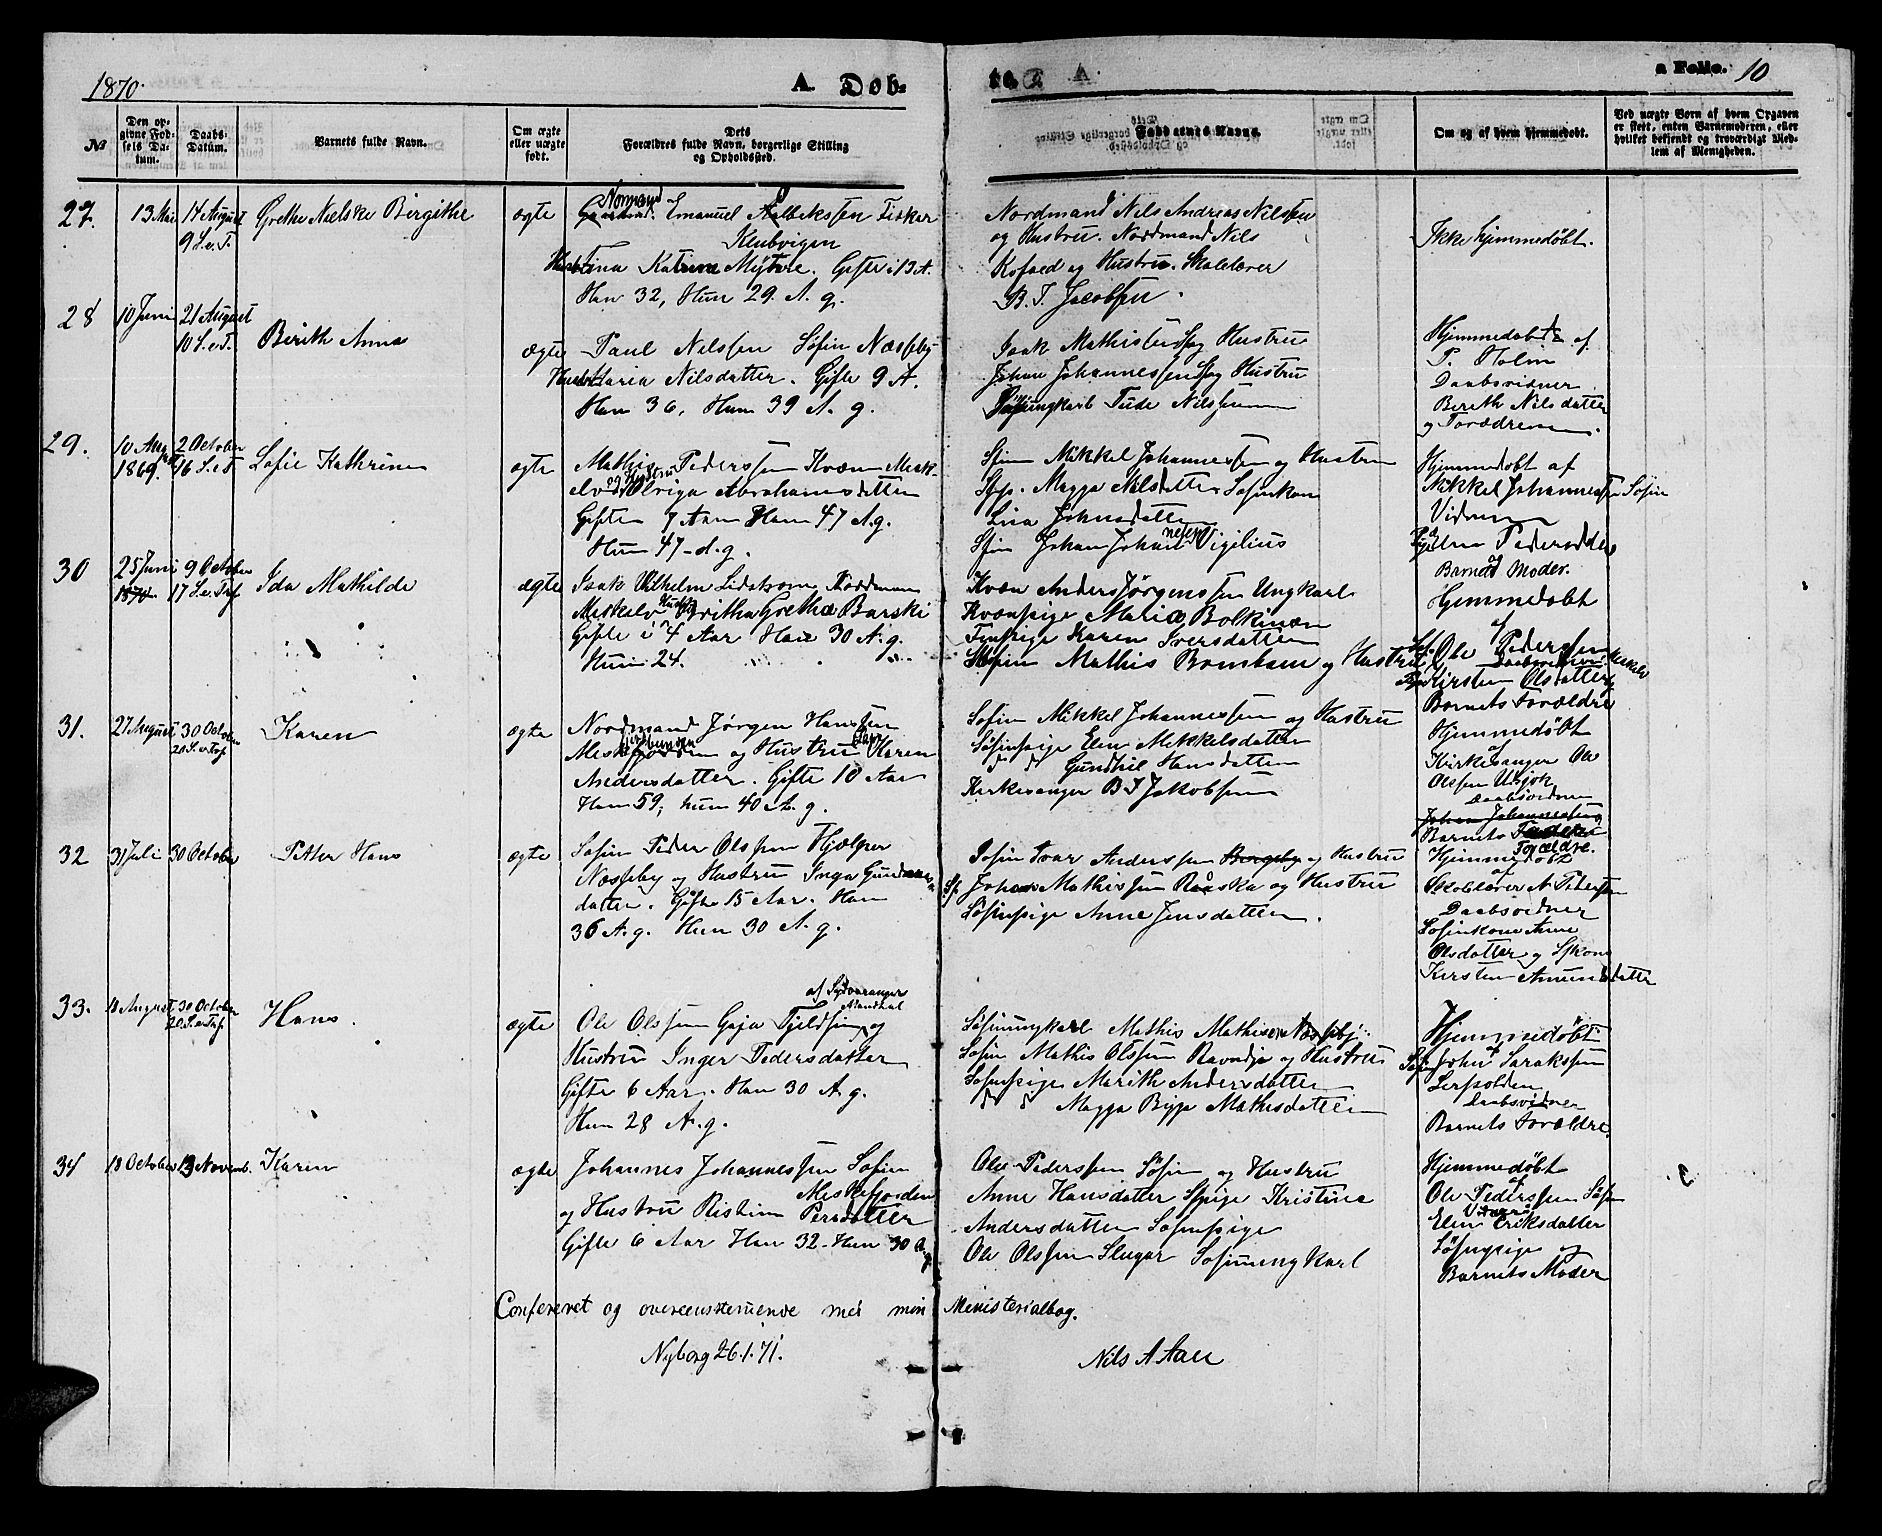 1870.
A. Døb-
te.
a Folio. 10
№
Den op-
givne Fød-
sels Da-
tum.
Daabs-
Datum.
Barnets fulde Navn.
Om ægte
eller uægte
født.
Dets
Forældres fulde Navn, borgerlige Stilling
og Opholdssted.
Faddernes Navne.
Om og af hvem hjemmedøbt.
Ved uægte Børn af hvem Opgaven
er skeet, enten Barnemoderen, eller
hvilket bekjendt og troværdigt Med-
lem af Menigheden.
27. 13 Mai 14 August
9 S. e. T.
Grethe Nielske Birgithe
ægte
Normand Emanuel Fisker
Klubvigen
Hustru Tina Katrine . Gifte i 13 A.
Han 32, Hun 29 A. g.
Nordmand Nils Andreas Nilssen
og Hustru. Nordmand Nils
Kofoed og Hustru. Skolelærer
B. J. Jacobsen.
Ikke hjemmedøbt.
28 10 Juni 21 August
10 S. e. T.
Berith Anna
ægte
Paul Nilssen Søfin Næsseby
Hustru Maria Nilsdatter. Gifte 9 A.
Han 36, Hun 39 A. g.
Isak Mathissen og Hustru
Johan Johannessen og Hustru
Ungkarl Tude Nilssen
Hjemmedøbt af
P. Holm
Daabsvidner
Berith Nilsdatter
og Forældrene.
29. 10 August
1869. 2 October
16 S. e. T
Sofie Kathrine
ægte
Mathis Pederssen Kvæn Mesk-
elv og Hustru Ulriga Abrahamsdatter
Gifte 7 Aar Han 47 A. g.
Hun 47 - d. g.
Sfin Mikkel Johannessen og Hustru
Sfp. Magga Nilsdatter Søfinkone
Lisa Johnsdatter
Sfin Johan Johannesen Vigilius
Hjemmedøbt af
Mikkel Johannessen Søfin
Vidner
Elen Pedersdatter
og
Barnets Moder.
30 25 Juni
1870 9 October
17 S. e. Tref.
Ida Mathilde
ægte
Isak Vilhelm Lidstrom, Nordmand
Meskelv Hustru Britha Gretha Barski
Gifte i 4 Aar Han 30 A. g.
Hun 24.
Kvæn Anders Jørgenssen Ungkarl
Kvænpige Maria Bolkinæn
Finpige Karen Iversdatter
Sfin Mathis Bomban og Hustru
Hjemmedøbt
af
Ole Pederssen
Daabsvidner
Kirsten Olsdatter
Barnets Forældre
31. 27 August 30 October
20 S. e. Tref.
Karen
ægte
Nordmand Jørgen Hanssen
og Hustru Karen
Andersdatter. Gifte 10 Aar
Han 59, hun 40 A. g.
Søfin Mikkel Johannessen og Hustru
Søfinpige Elen Mikkelsdatter
d d Gundhil Hansdatter
Kirkesanger B J Jakobsen
Hjemmedøbt
af
Kirkesanger Ole
Olssen Utsjok
Daabsvidner
Johan Johannessen
Barnets
Forældre.
32 31 Juli 30 October
Petter Hans
ægte
Søfin Peder Olssen Hjelper
Næsseby og Hustru Inga
datter. Gifte 15 Aar. Han
36 A. g. Hun 30 A. g.
Søfin Ivar Anderssen og Hustru
Sf. Johan Mathissen Raska og Hustru
Søfinpige Anne Jensdatter.
Hjemmedøbt
af
Skolelærer N. Pederssen
Daabsvidner
Søfinkone Anne
Olsdatter og Sfkone
Kirsten Amundsdatter
33. 18 August 30 October
20 S. e. Tref.
Hans.
ægte
af Sydvaranger
Ole Olssen Gaja Fjeldfin og
Hustru Inger Pedersdatter
Gifte 6 Aar. Han 30 A. g.
Hun 28 A. g.
Søfinungkarl Mathis Mathisen Næsseby
Søfin Mathis Olssen Ravndje og Hustru
Søfinpige Marith Andersdatter
d d Magga Bigga Mathisdatter
Hjemmedøbt
af
Søfin John Sarakssen
Daabsvidner
Barnets Forældre.
34 18 October 13 Novemb.
Karen
ægte
Johannes Johannessen Søfin
Meskefjorden
og Hustru Ristin Persdatter
Gifte 6 Aar Han 32 - Hun 30 A. g.
Ole Pederssen Søfin og Hustru
Anne Hansdatter Spige Kristine
Andersdatter Søfinpige
Ole Olssen Slugar Søfinungkarl
Hjemmedøbt
af
Ole Pederssen Søfin
Elen Eriksdatter
Søfinpige og
Barnets Moder
Confereret og overeensstemmende med min Ministerialbog.
Nyborg 26.1.71.
Nils A Aall